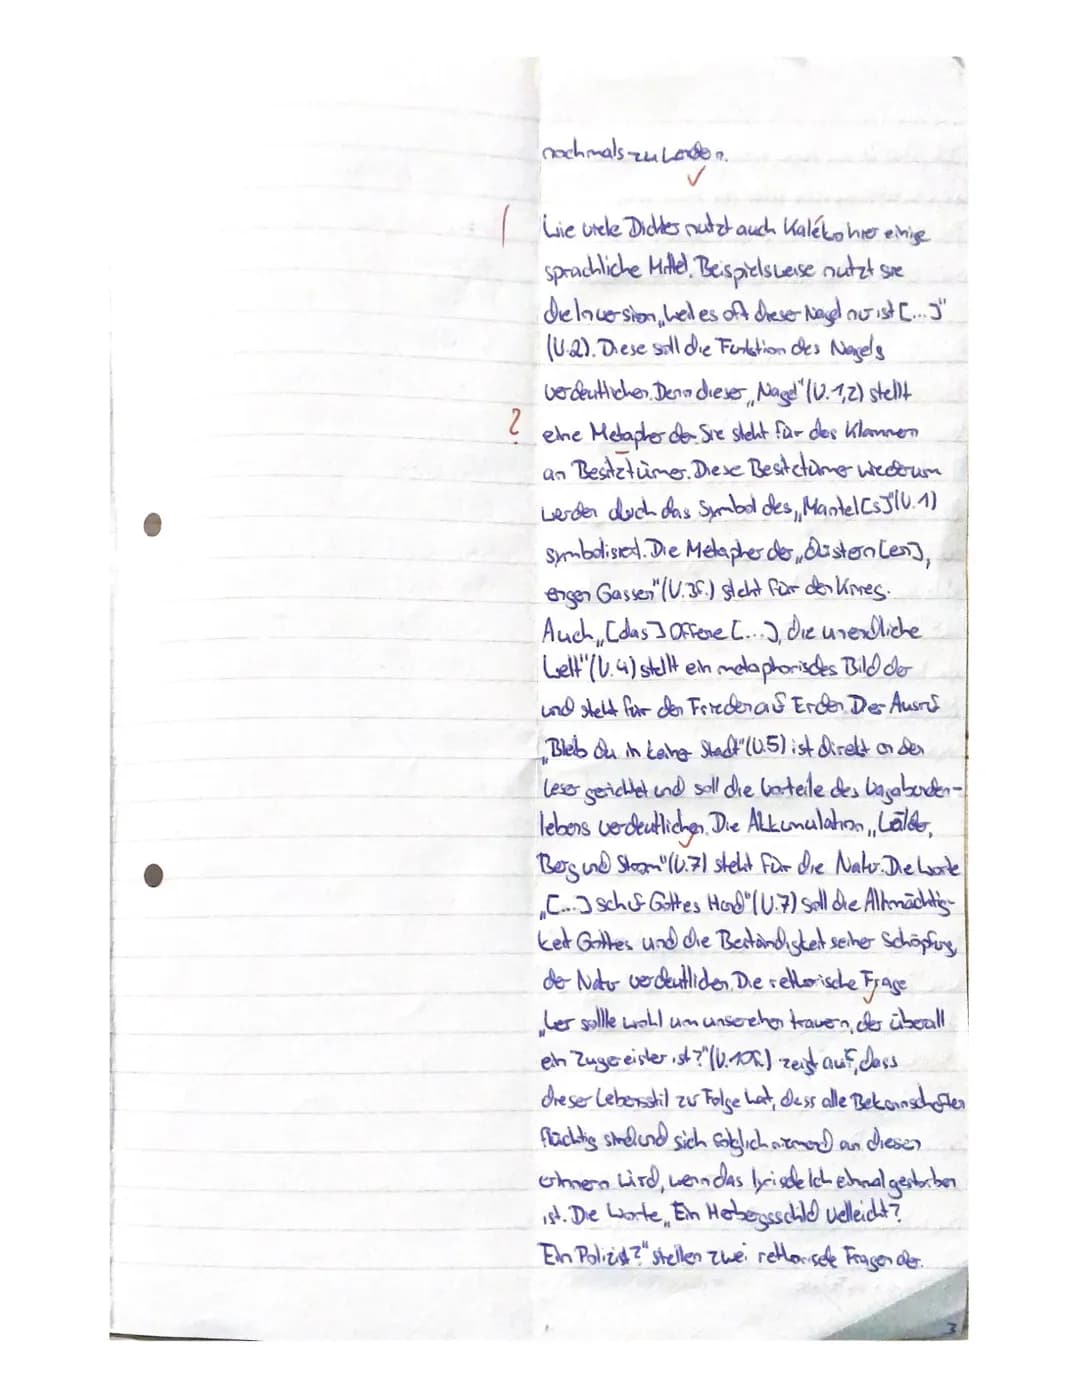 nochmals zu werden.
Wie viele Dichter nutzt auch Kaléko hier einige
sprachliche Mittel. Beispielsweise nutzt sie
die Inversion „weil es oft dieser Nagel nur ist [...]"
(V.2). Diese soll die Funktion des Nagels
verdeutlichen. Denn dieser „Nagel" (V.1,2) stellt
? eine Metapher dar. Sie steht für das Klammern
an Besitztümer. Diese Besitztümer wiederum
werden durch das Symbol des „Mantel[s]" (V.1)
symbolisiert. Die Metapher der „düstern[en],
engen Gassen" (V.3f.) steht für den Krieg.
Auch „[das] Offene [...], die unendliche
Welt" (V.4) stellt ein metaphorisches Bild dar
und steht für den Frieden auf Erden. Der Ausruf
„Bleib du in keiner Stadt" (V.5) ist direkt an den
Leser gerichtet und soll die Vorteile des Vagabunden-
lebens verdeutlichen. Die Akkumulation „Wälder,
Berg und Strom" (V.7) steht für die Natur. Die Worte
„[...] schuf Gottes Hand" (V.7) soll die Allmächtig-
keit Gottes und die Beständigkeit seiner Schöpfung,
der Natur verdeutlichen. Die rethorische Frage
„Wer sollte wohl um unsereinen trauern, der überall
ein Zugereister ist?" (V.10f.) zeigt auf, dass
dieser Lebensstil zur Folge hat, dass alle Bekannschaften
flüchtig sind und sich folglich niemand an diesen
erinnern wird, wenn das lyrische Ich einmal gestorben
ist. Die Worte „Ein Herbergsschild vielleicht?
Ein Polizist?" stellen zwei rethorische Fragen dar.
3